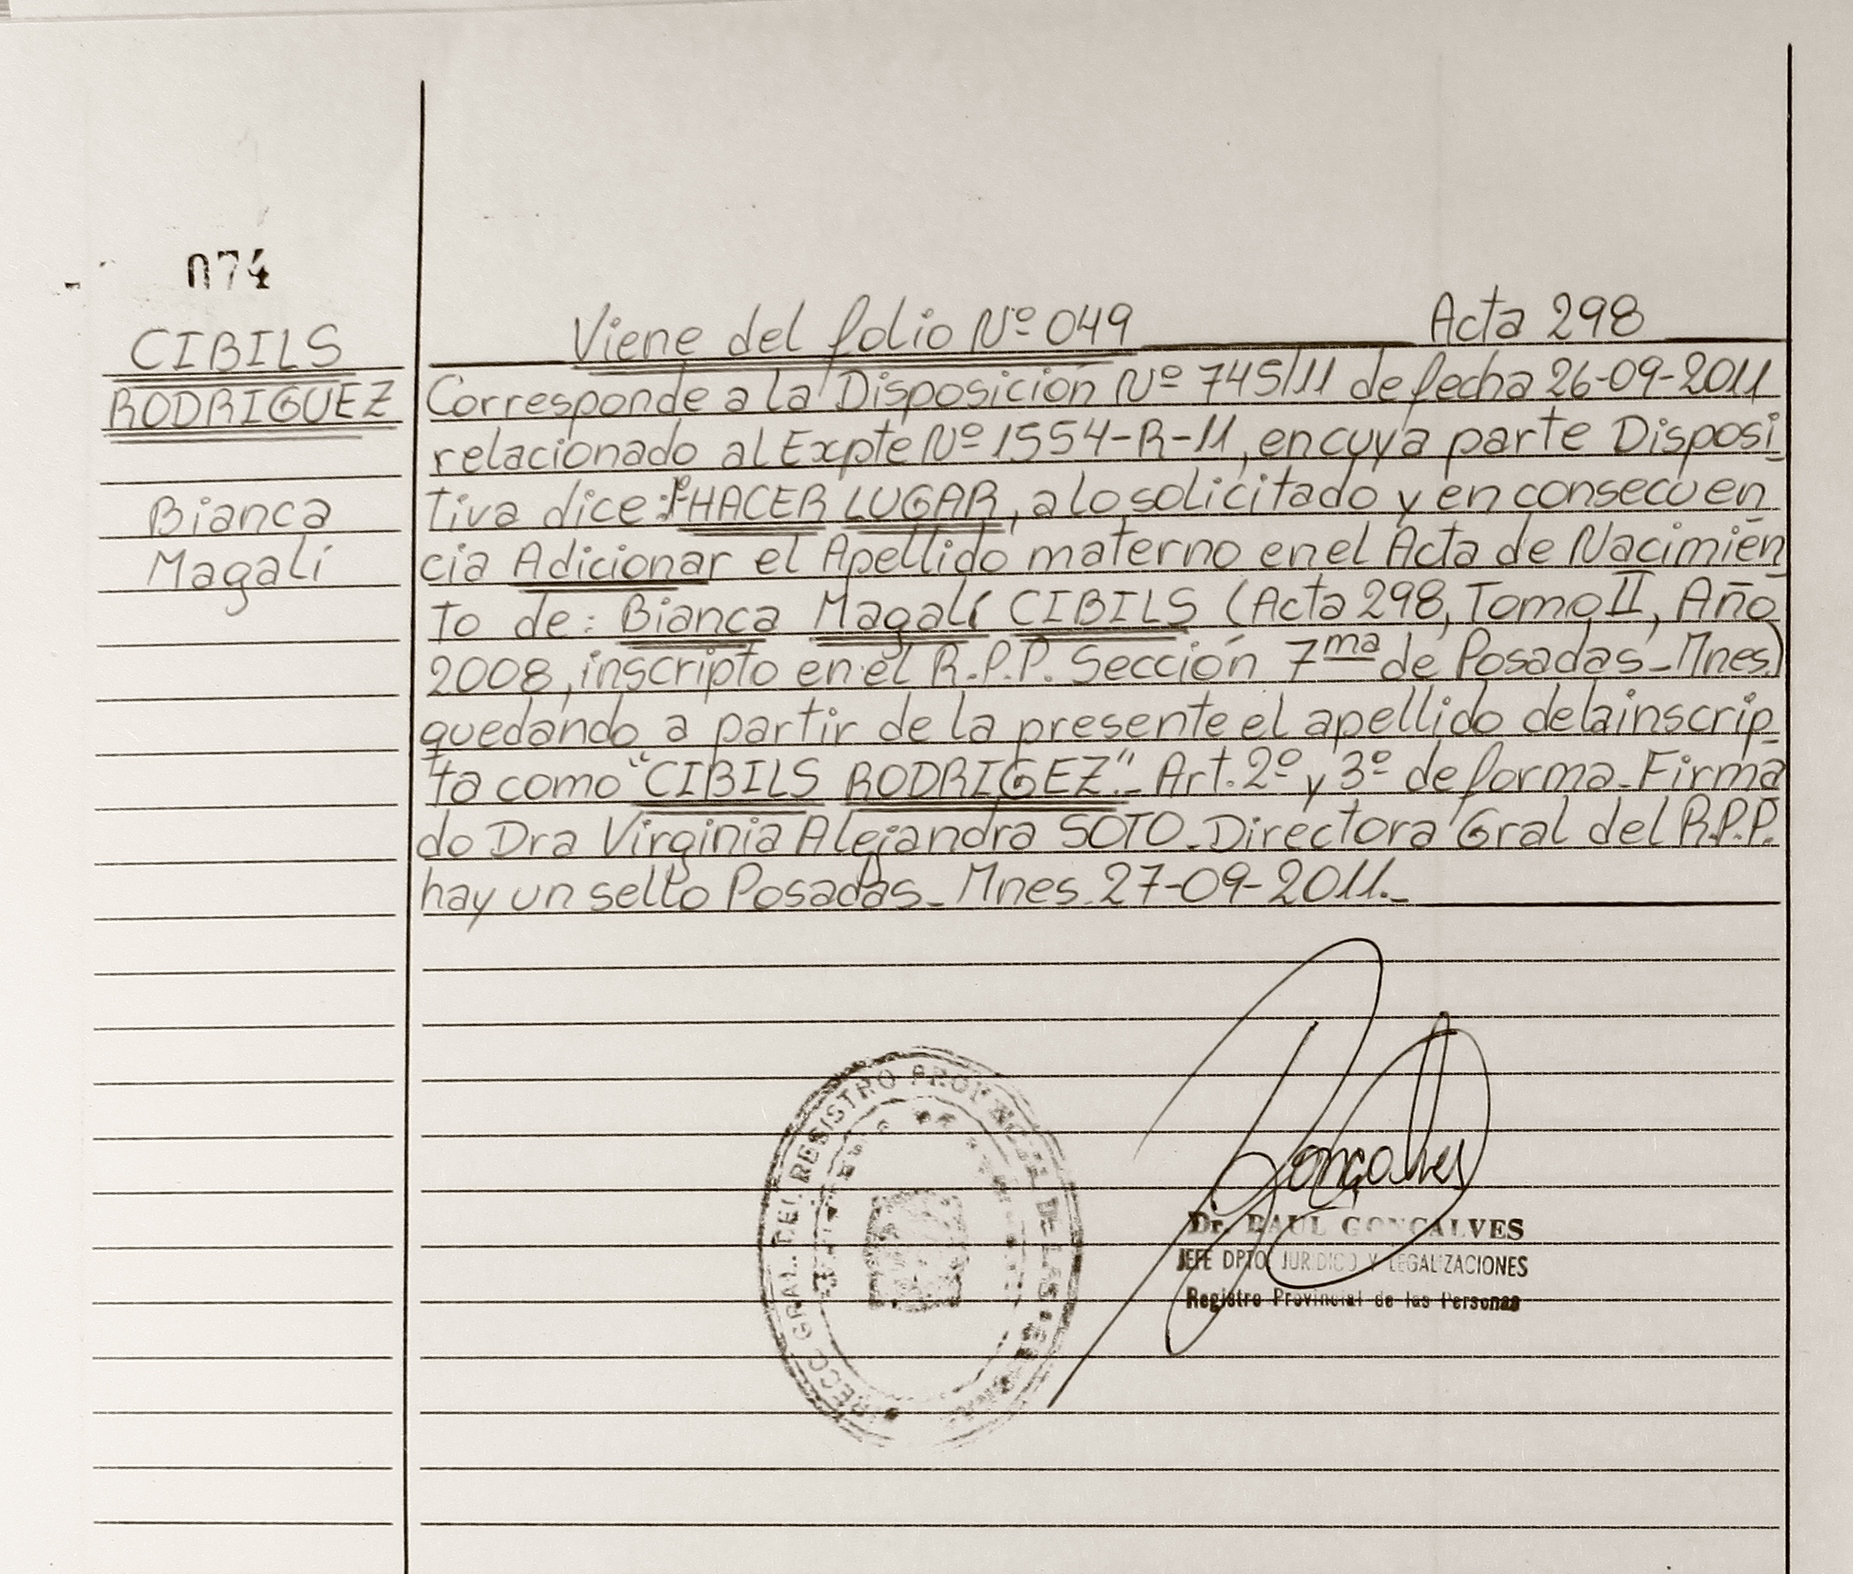 074
CIBILS
RODRIGUEZ
Bianca
Magalí
Viene del folio Nº 049 Acta 298
Corresponde a la Disposición Nº 745/11 de fecha 26-09-2011
relacionado al Expte Nº 1554-R-11, en cuya parte Disposi-
tiva dice: "HACER LUGAR, a lo solicitado y en consecuen
cia Adicionar el Apellido materno en el Acta de Nacimien
to de: Bianca Magalí CIBILS (Acta 298, Tomo II, Año
2008, inscripto en el R.P.P. Sección 7ma de Posadas-Mnes.)
quedando a partir de la presente el apellido de la inscrip-
ta como "CIBILS RODRIGEZ".- Art. 2º y 3º de forma-Firma
do Dra Virginia Alejandra SOTO-Directora Gral del R.P.P.
hay un sello Posadas-Mnes. 27-09-2011.-
Goncalves
Dr. RAUL GONCALVES
JEFE DPTO. JURIDICO Y LEGALIZACIONES
Registro Provincial de las Personas
DIRECC. GRAL. DEL REGISTRO PROVINCIAL DE LAS